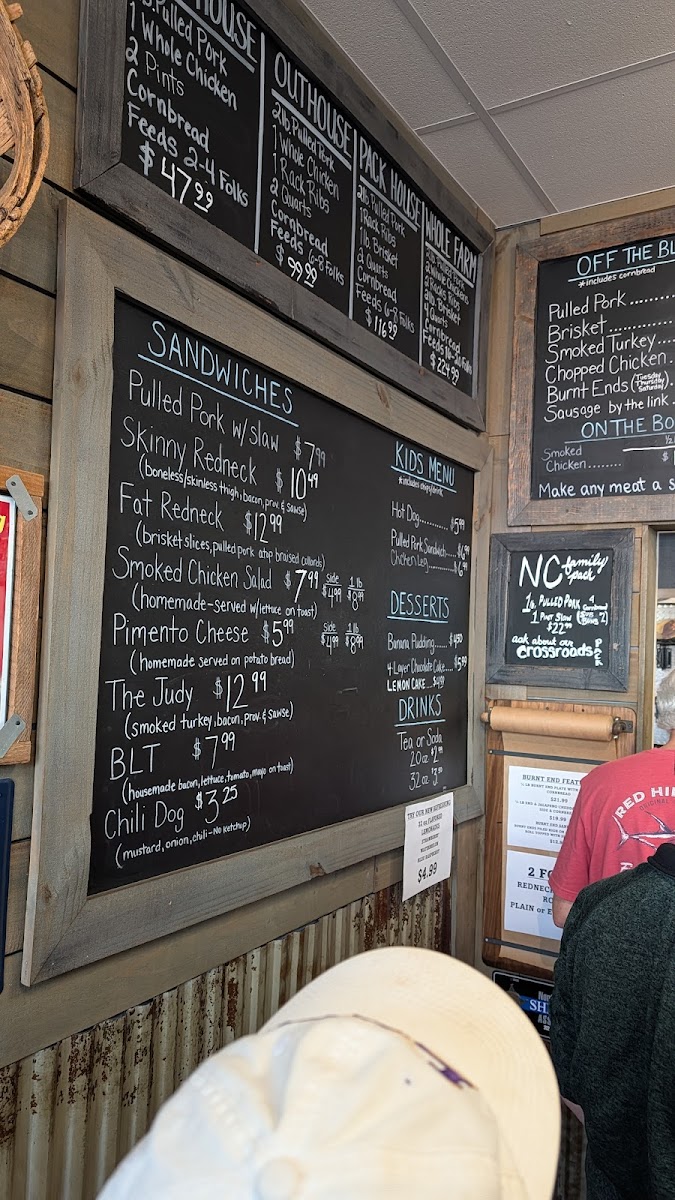 HOUSE
Pulled Pork
1 Whole Chicken
2 Pints
Cornbread
Feeds 2-4 Folks
$47.99
OUTHOUSE
2lb Pulled Pork
1 Whole Chicken
1 Rack Ribs
2 Quarts
Cornbread
Feeds 6-8 Folks
$99.99
PACK HOUSE
2lb Pulled Pork
1 Rack Ribs
1lb Brisket
2 Quarts
Cornbread
Feeds 6-8 Folks
$116.99
WHOLE FARM
Brisket
Quarts
Cornbread
$224.99
SANDWICHES
Pulled Pork w/slaw $7.99
Skinny Redneck $10.49
(boneless/skinless thigh, bacon, prov. & sawse)
Fat Redneck $12.99
(brisket slices, pulled pork atop braised collards)
Smoked Chicken Salad $7.99 Side $4.99 1 lb $8.99
(homemade-served w/lettuce on toast)
Pimento Cheese $5.99 Side $4.99 1 lb $8.99
(homemade served on potato bread)
The Judy $12.99
(smoked turkey, bacon, prov. & sawse)
BLT $7.99
(housemade bacon, lettuce, tomato, mayo on toast)
Chili Dog $3.25
(mustard, onion, chili-No Ketchup)
KIDS MENU
*includes chips/drink
Hot Dog......... $5.99
Pulled Pork Sandwich.....$6.99
Chicken Leg......$6.99
DESSERTS
Banana Pudding...... $4.50
4 Layer Chocolate Cake....$5.99
LEMON CAKE....$4.99
DRINKS
Tea or Soda
20oz $2.99
32 oz $3.50
TRY OUR NEW REFRESHING
32 oz FLAVORED
LEMONADES
STRAWBERRY
WATERMELON
BLUE RASPBERRY
$4.99
OFF THE BL
*includes cornbread
Pulled Pork
Brisket
Smoked Turkey
Chopped Chicken
Burnt Ends (Tuesday Thursday Saturday)
Sausage by the link
ON THE BO
Smoked
Chicken........ $
Make any meat a s
NC family pack
1lb PULLED PORK 4 Cornbread
1 PINT SLAW
$22.99
ask about our
crossroads
BURNT END FEAT
$21.99
2 FO
REDNEC
RO
PLAIN or
RED HI
ORIGINAL